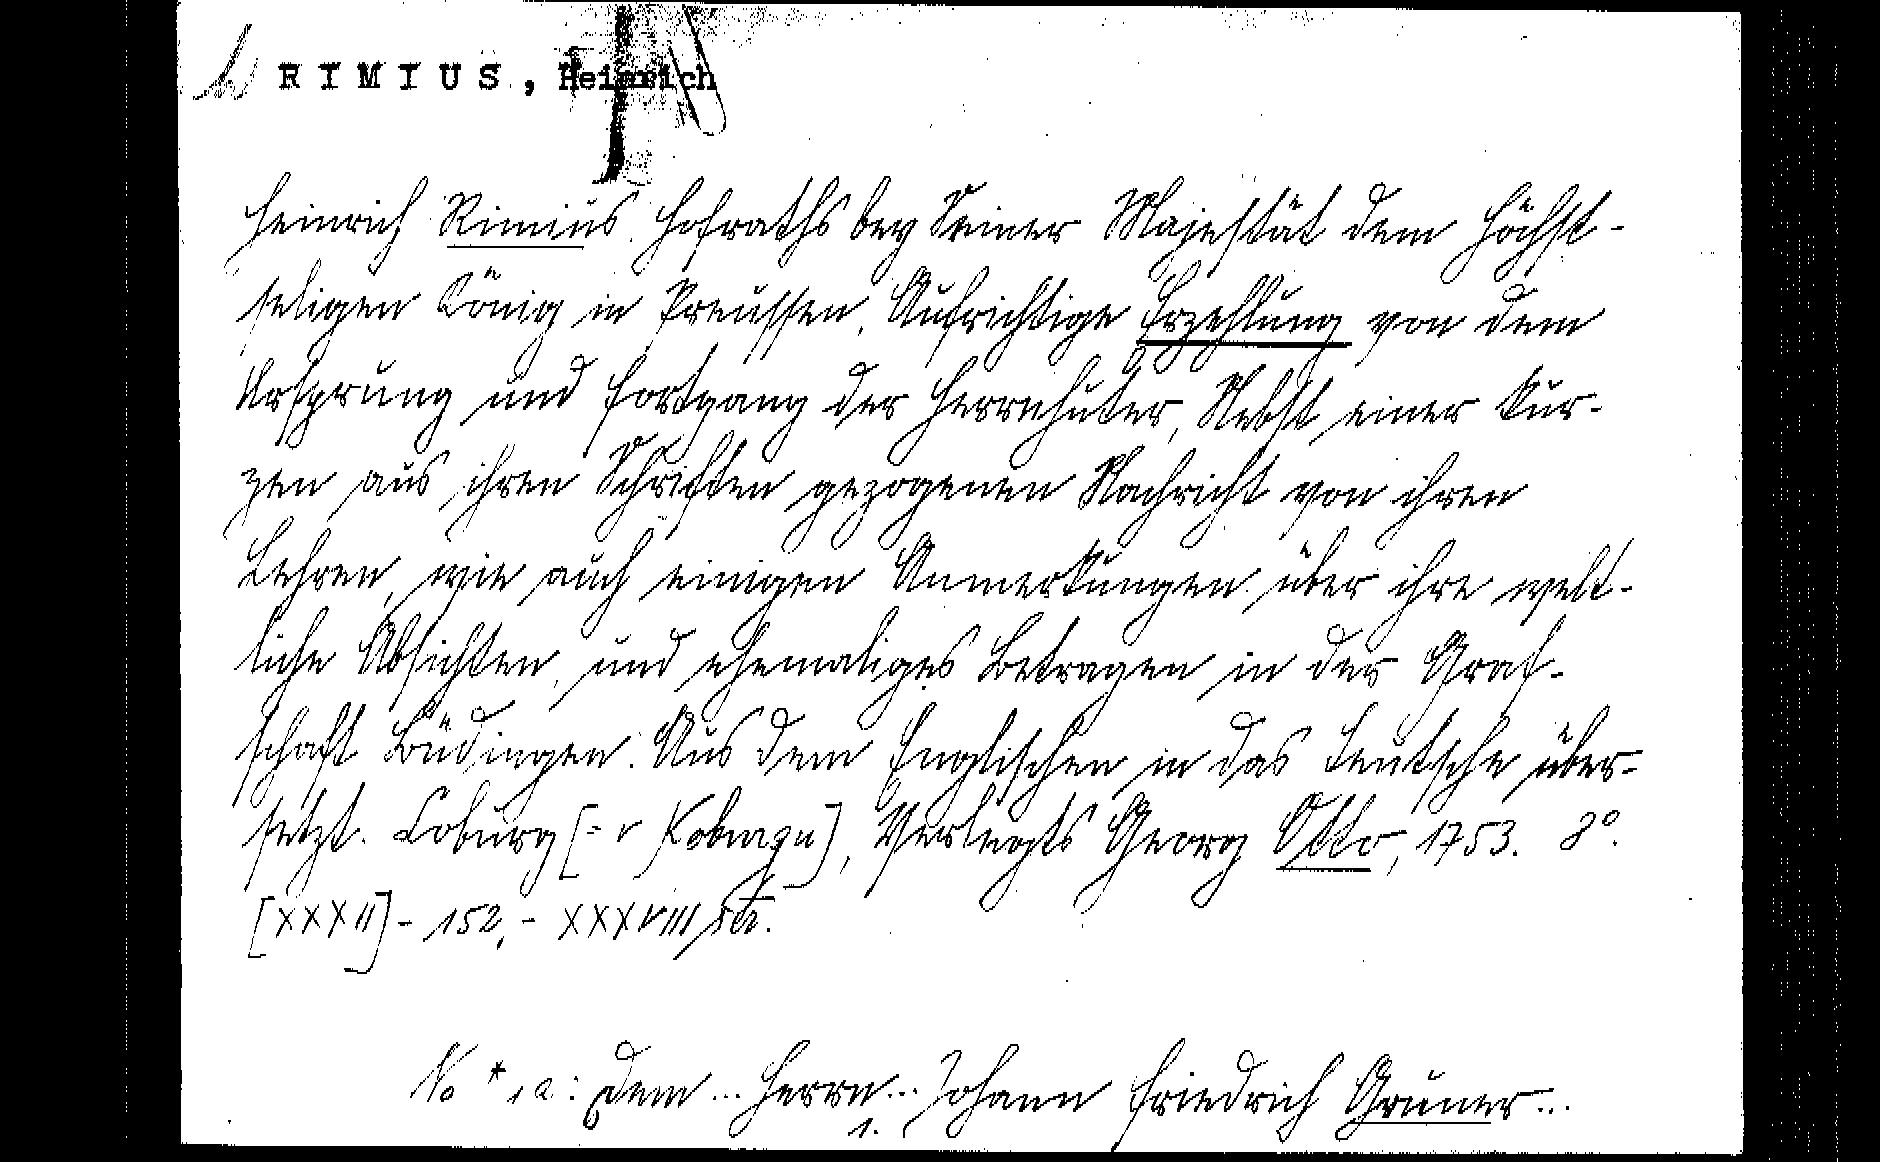 RIMIUS, Heinrich
Heinrich Rimius. Hofraths bey Seiner Majestät dem höchst-
seligen König in Preussen, Aufrichtige Erzehlung von dem
Ursprung und Fortgang der Herrnhuter, Nebst einer kur-
zen aus ihren Schriften gezogenen Nachricht von ihren
Lehren, wie auch einigen Anmerkungen über ihre welt-
liche Absichten, und ehemaliges Betragen in der Graf-
schaft Büdingen. Aus dem Englischen in das Teutsche über-
setzt. Coburg [= v Koburgu], Verlegts Georg Otto, 1753. 8°.
[XXXII] - 152, - XXXVIII
No *1a: Dem ... Herrn ... Johann Friedrich Gruner ...
1.